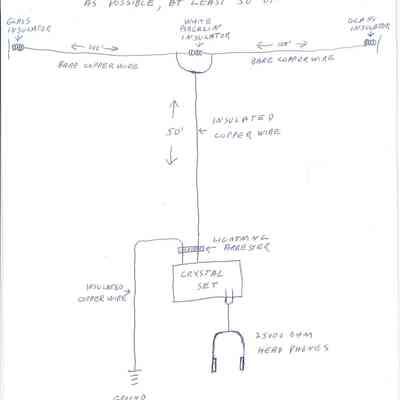 AS POSSIBLE, AT LEAST 50'
GLASS
INSULATOR
WHITE
INSULATOR
GLASS
INSULATOR
BARE COPPER WIRE
BARE COPPER WIRE
50'
INSULATED
COPPER WIRE
LIGHTNING
ARRESTER
CRYSTAL
SET
INSULATED
COPPER WIRE
2000 OHM
HEAD PHONES
GROUND